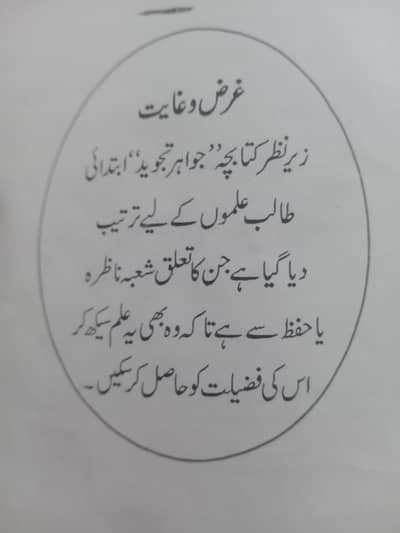 غرض و غایت
زیر نظر کتابچہ ”جواہر تجوید“ ابتدائی
طالب علموں کے لیے ترتیب
دیا گیا ہے جن کا تعلق شعبہ ناظرہ
یا حفظ سے ہے تاکہ وہ بھی یہ علم سیکھ کر
اس کی فضیلت کو حاصل کر سکیں۔